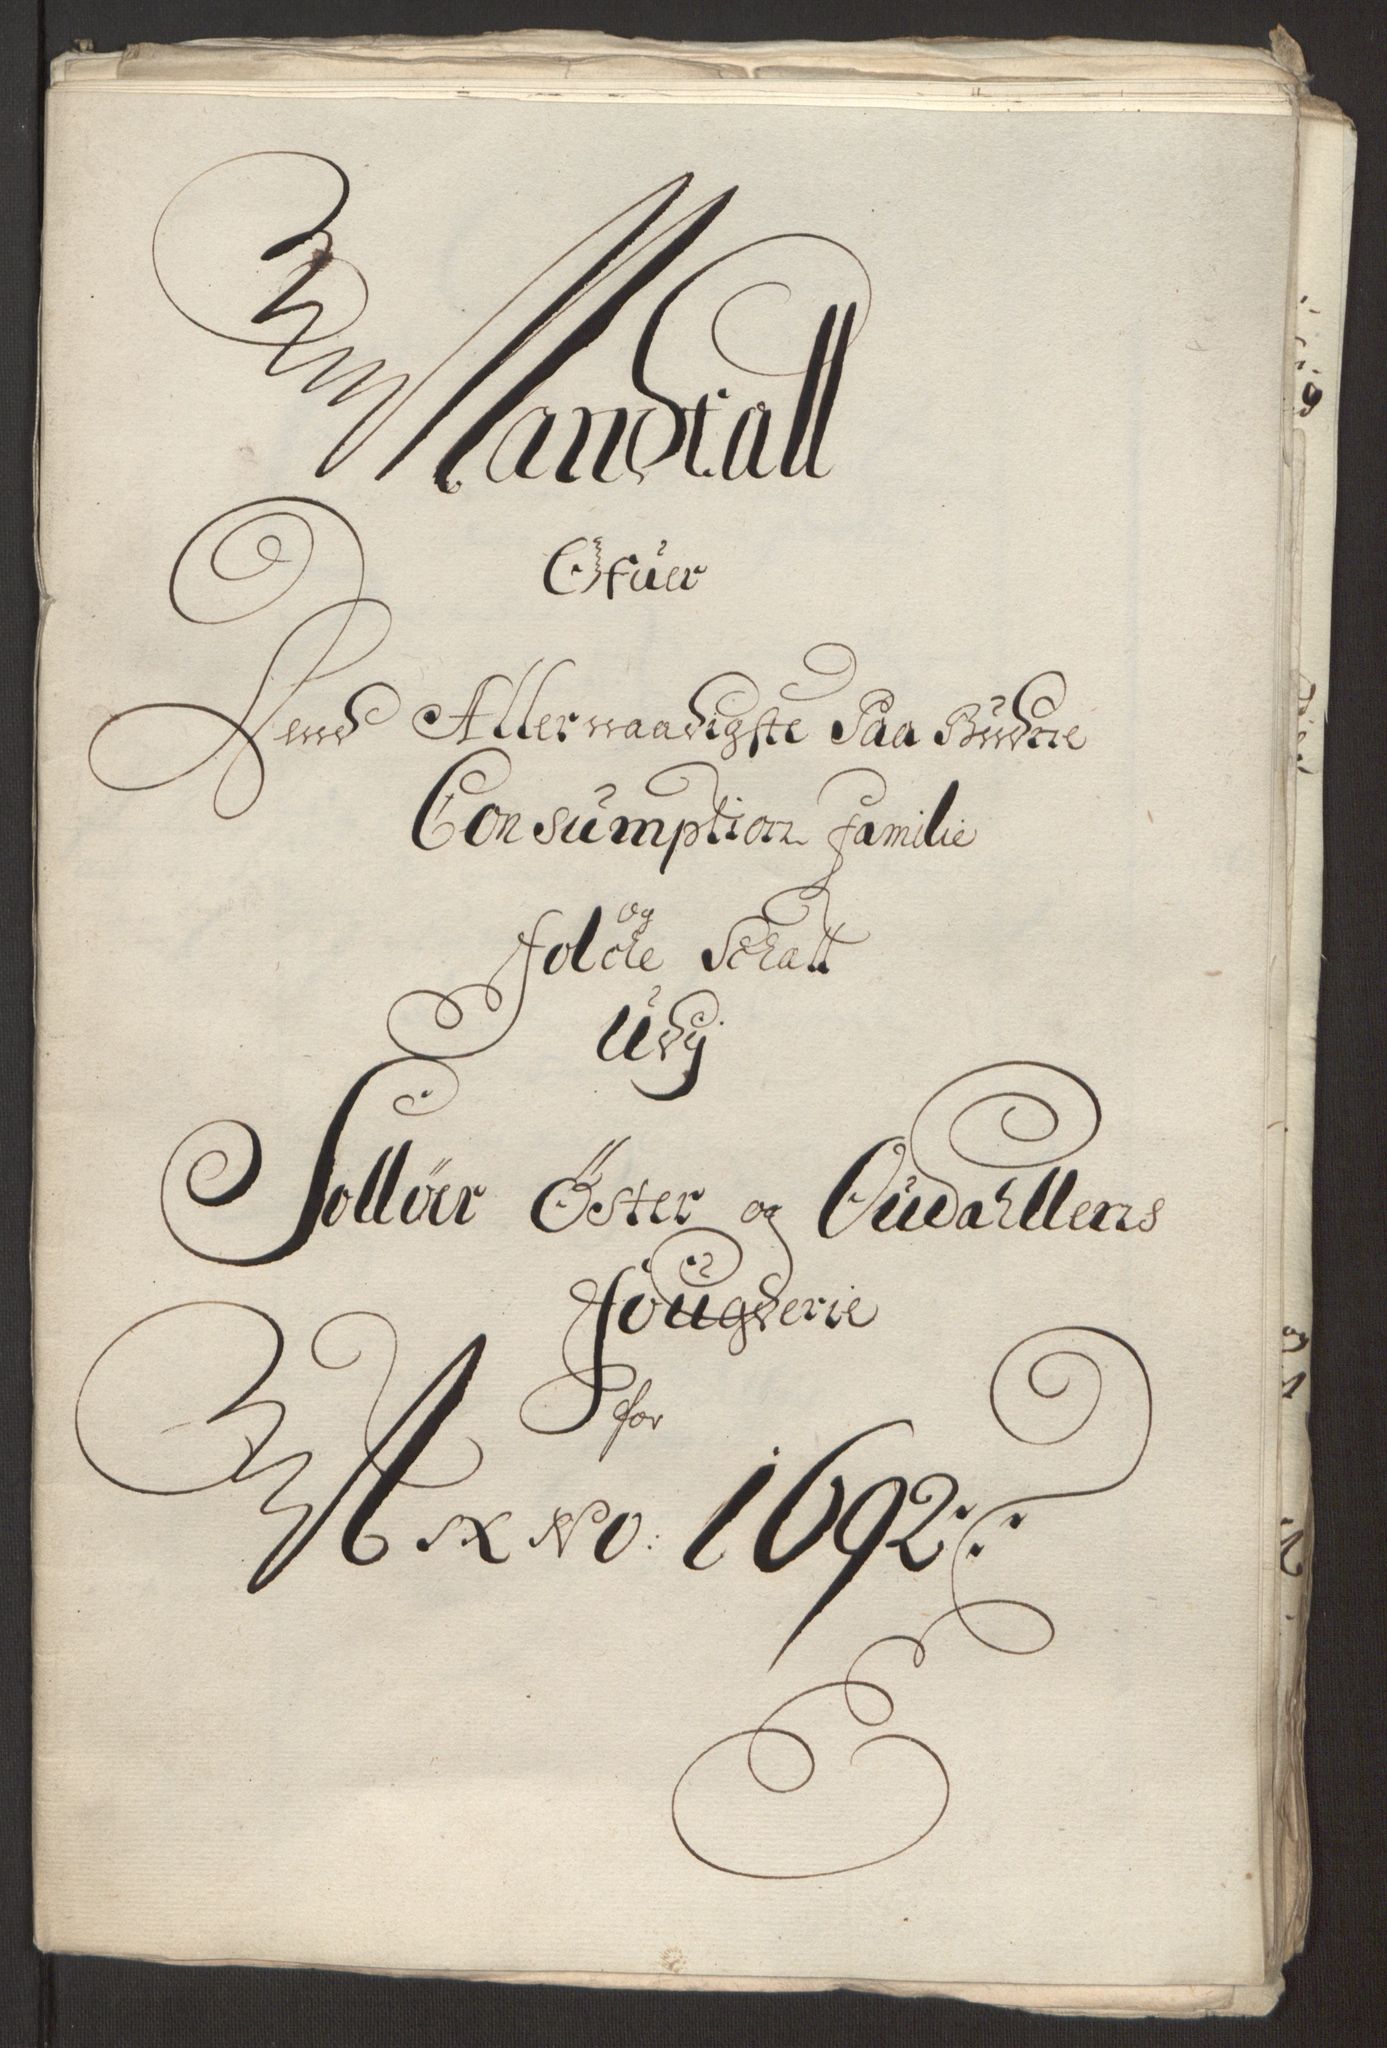 Mandtall
Ofuer
Dend Allernaadigste Paa Büdne
Consumption familie
og
folcke Schatt
Udj
Sollöer Öster og Oudahllens
fougderie
for
Anno: 1692